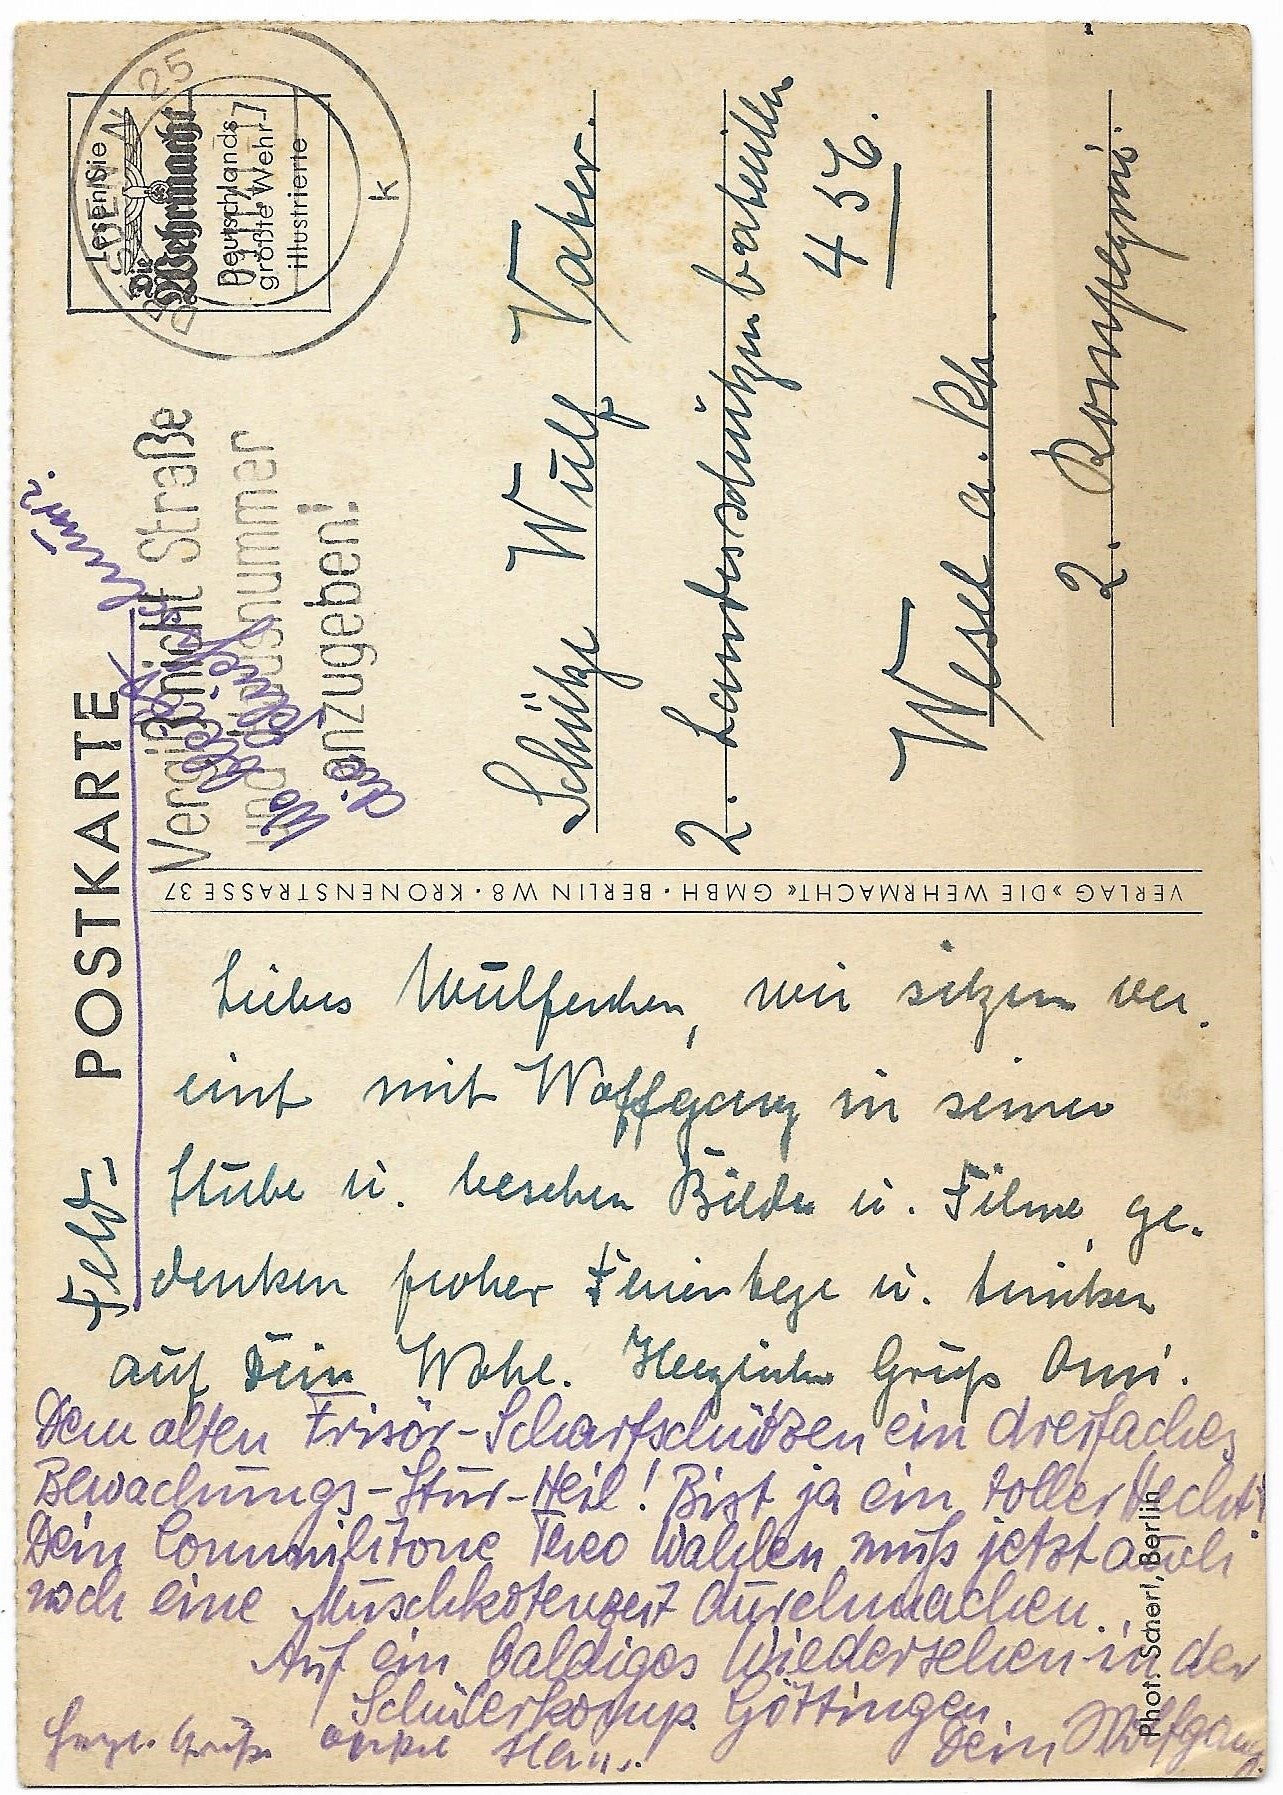 POSTKARTE
Feld-
DRESDEN N 25
k
Lesen Sie
Die
Wehrmacht
Deutschlands
größte Wehr-
illustrierte
Vergiß nicht Straße
und Hausnummer
anzugeben!
Wo bleibt
die
Schütze Wulf Vater.
2. Landesschützenbataillon
456.
Wesel a. Rh.
2. Kompagnie.
VERLAG »DIE WEHRMACHT« GMBH · BERLIN W8 · KRONENSTRASSE 37
Liebes Wulfechen, wir sitzen ver.
eint mit Wolfgang in seiner
Stube u. besehen Bilder u. Filme, ge-
denken froher Ferientage u. trinken
auf Dein Wohl. Herzlichen Gruß Omi.
Dem alten Frisör-Scharfschützen ein dreifaches
Bewachungs-Stur-Heil! Bist ja ein toller Hecht!
Dein Commilitone Theo Wahlen muß jetzt auch
noch eine Muschkotenzeit durchmachen.
Auf ein baldiges Wiedersehen in der
Schülerkomp. Göttingen.
Dein Wolfgang
Herzl. Gruß Onkel
Phot. Scherl, Berlin